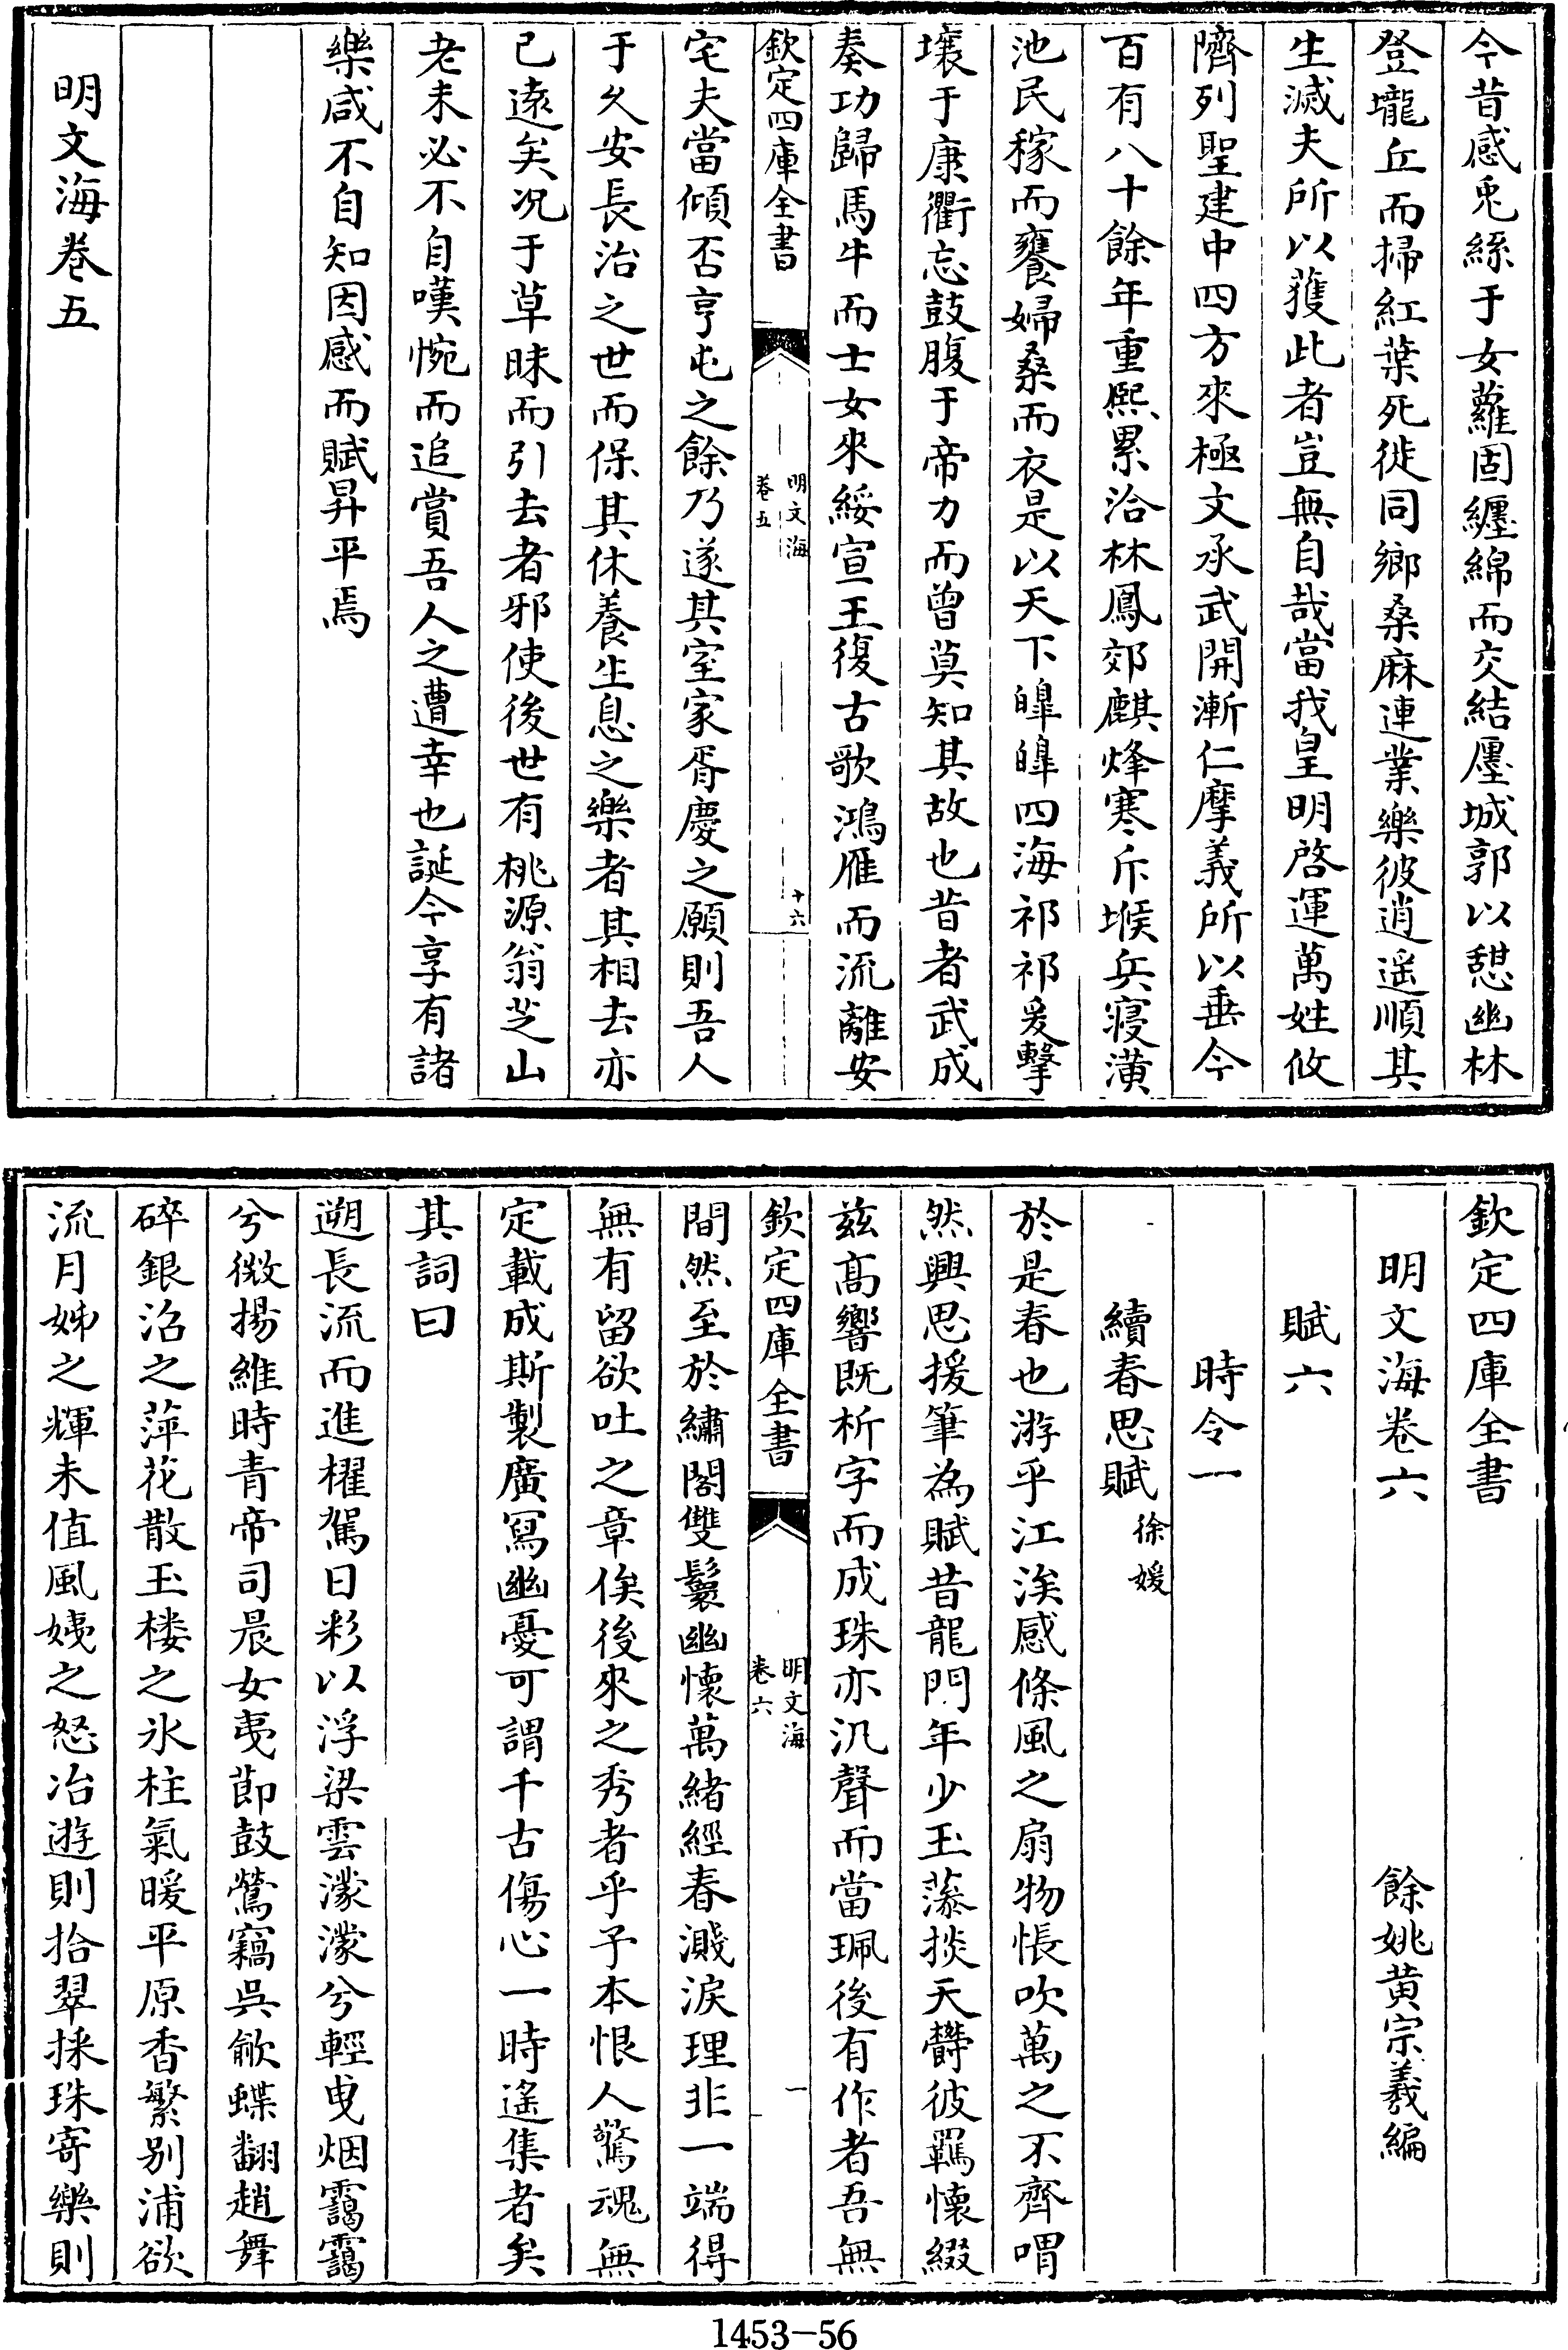 今昔感兎絲于女蘿固纏綿而交結㕓城郭以憇幽林
登壠丘而掃紅葉死徙同鄉桑麻連業樂彼逍遥順其
生滅夫所以獲此者豈無自哉當我皇明啓運萬姓攸
隮列聖建中四方來極文承武開漸仁摩義所以垂今
百有八十餘年重熙累洽林鳳郊麒烽寒斥堠兵寝潢
池民稼而饔婦桑而衣是以天下皥皥四海祁祁爰擊
壤于康衢忘鼓腹于帝力而曾莫知其故也昔者武成
奏功歸馬牛而士女來綏宣王復古歌鴻雁而流離安
欽定四庫全書
明文海
卷五
十六
宅夫當傾否亨屯之餘乃遂其室家胥慶之願則吾人
于久安長治之世而保其休養生息之樂者其相去亦
已逺矣况于草昧而引去者邪使後世有桃源翁芝山
老未必不自嘆惋而追賞吾人之遭幸也誕今享有諸
樂咸不自知因感而賦昇平焉
明文海卷五
欽定四庫全書
明文海卷六
餘姚黄宗羲編
賦六
時令一
續春思賦
徐媛
於是春也游乎江涘感條風之扇物悵吹萬之不齊喟
然興思援筆為賦昔龍門年少玉藻掞天欝彼羈懷綴
兹高響既析字而成珠亦汎聲而當珮後有作者吾無
欽定四庫全書
明文海
卷六
一
間然至於繡閣雙鬟幽懷萬緒經春濺淚理非一端得
無有留欲吐之章俟後來之秀者乎予本恨人驚魂無
定載成斯製廣冩幽憂可謂千古傷心一時遙集者矣
其詞曰
遡長流而進櫂駕日彩以浮梁雲濛濛兮輕曵烟靄靄
兮微揚維時青帝司晨女夷節鼓鶯竊吳歈蝶翻趙舞
碎銀沼之萍花散玉楼之氷柱氣暖平原香繁别浦欲
流月姊之輝未值風姨之怒冶遊則拾翠採珠寄樂則
1453-56